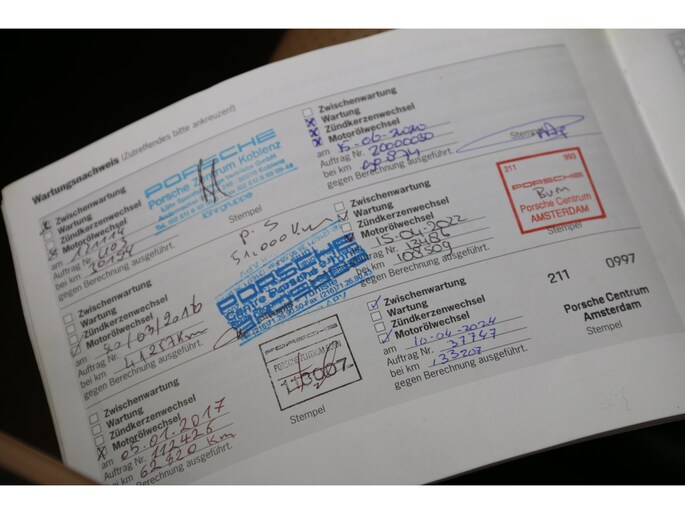 Wartungsnachweis (Zutreffendes bitte ankreuzen)
Zwischenwartung
Wartung
Zündkerzenwechsel
Motorölwechsel
am
Auftrag Nr. 403
bei km 30194
gegen Berechnung ausgeführt.
PORSCHE
Porsche Zentrum Koblenz
Stempel
P.S
51.000 Km
Zwischenwartung
Wartung
Zündkerzenwechsel
Motorölwechsel
am 30/03/2016
bei km 41257Km
gegen Berechnung ausgeführt.
PORSCHE
Zwischenwartung
Wartung
Zündkerzenwechsel
Motorölwechsel
am 05.01.2017
Auftrag Nr. 112426
bei km 62820 Km
gegen Berechnung ausgeführt.
Stempel
Zwischenwartung
Wartung
Zündkerzenwechsel
Motorölwechsel
am 15-06-2020
Auftrag Nr. 20000080
bei km 90874
gegen Berechnung ausgeführt.
Stempel
Wartung
Zündkerzenwechsel
Motorölwechsel
15-04-2022
13486
108509
gegen Berechnung ausgeführt.
211 993
PORSCHE
Porsche Centrum
AMSTERDAM
Stempel
Zwischenwartung
Wartung
Zündkerzenwechsel
Motorölwechsel
am 10-04-2024
Auftrag Nr. 37747
bei km 133207
gegen Berechnung ausgeführt.
211 0997
Porsche Centrum
Amsterdam
Stempel